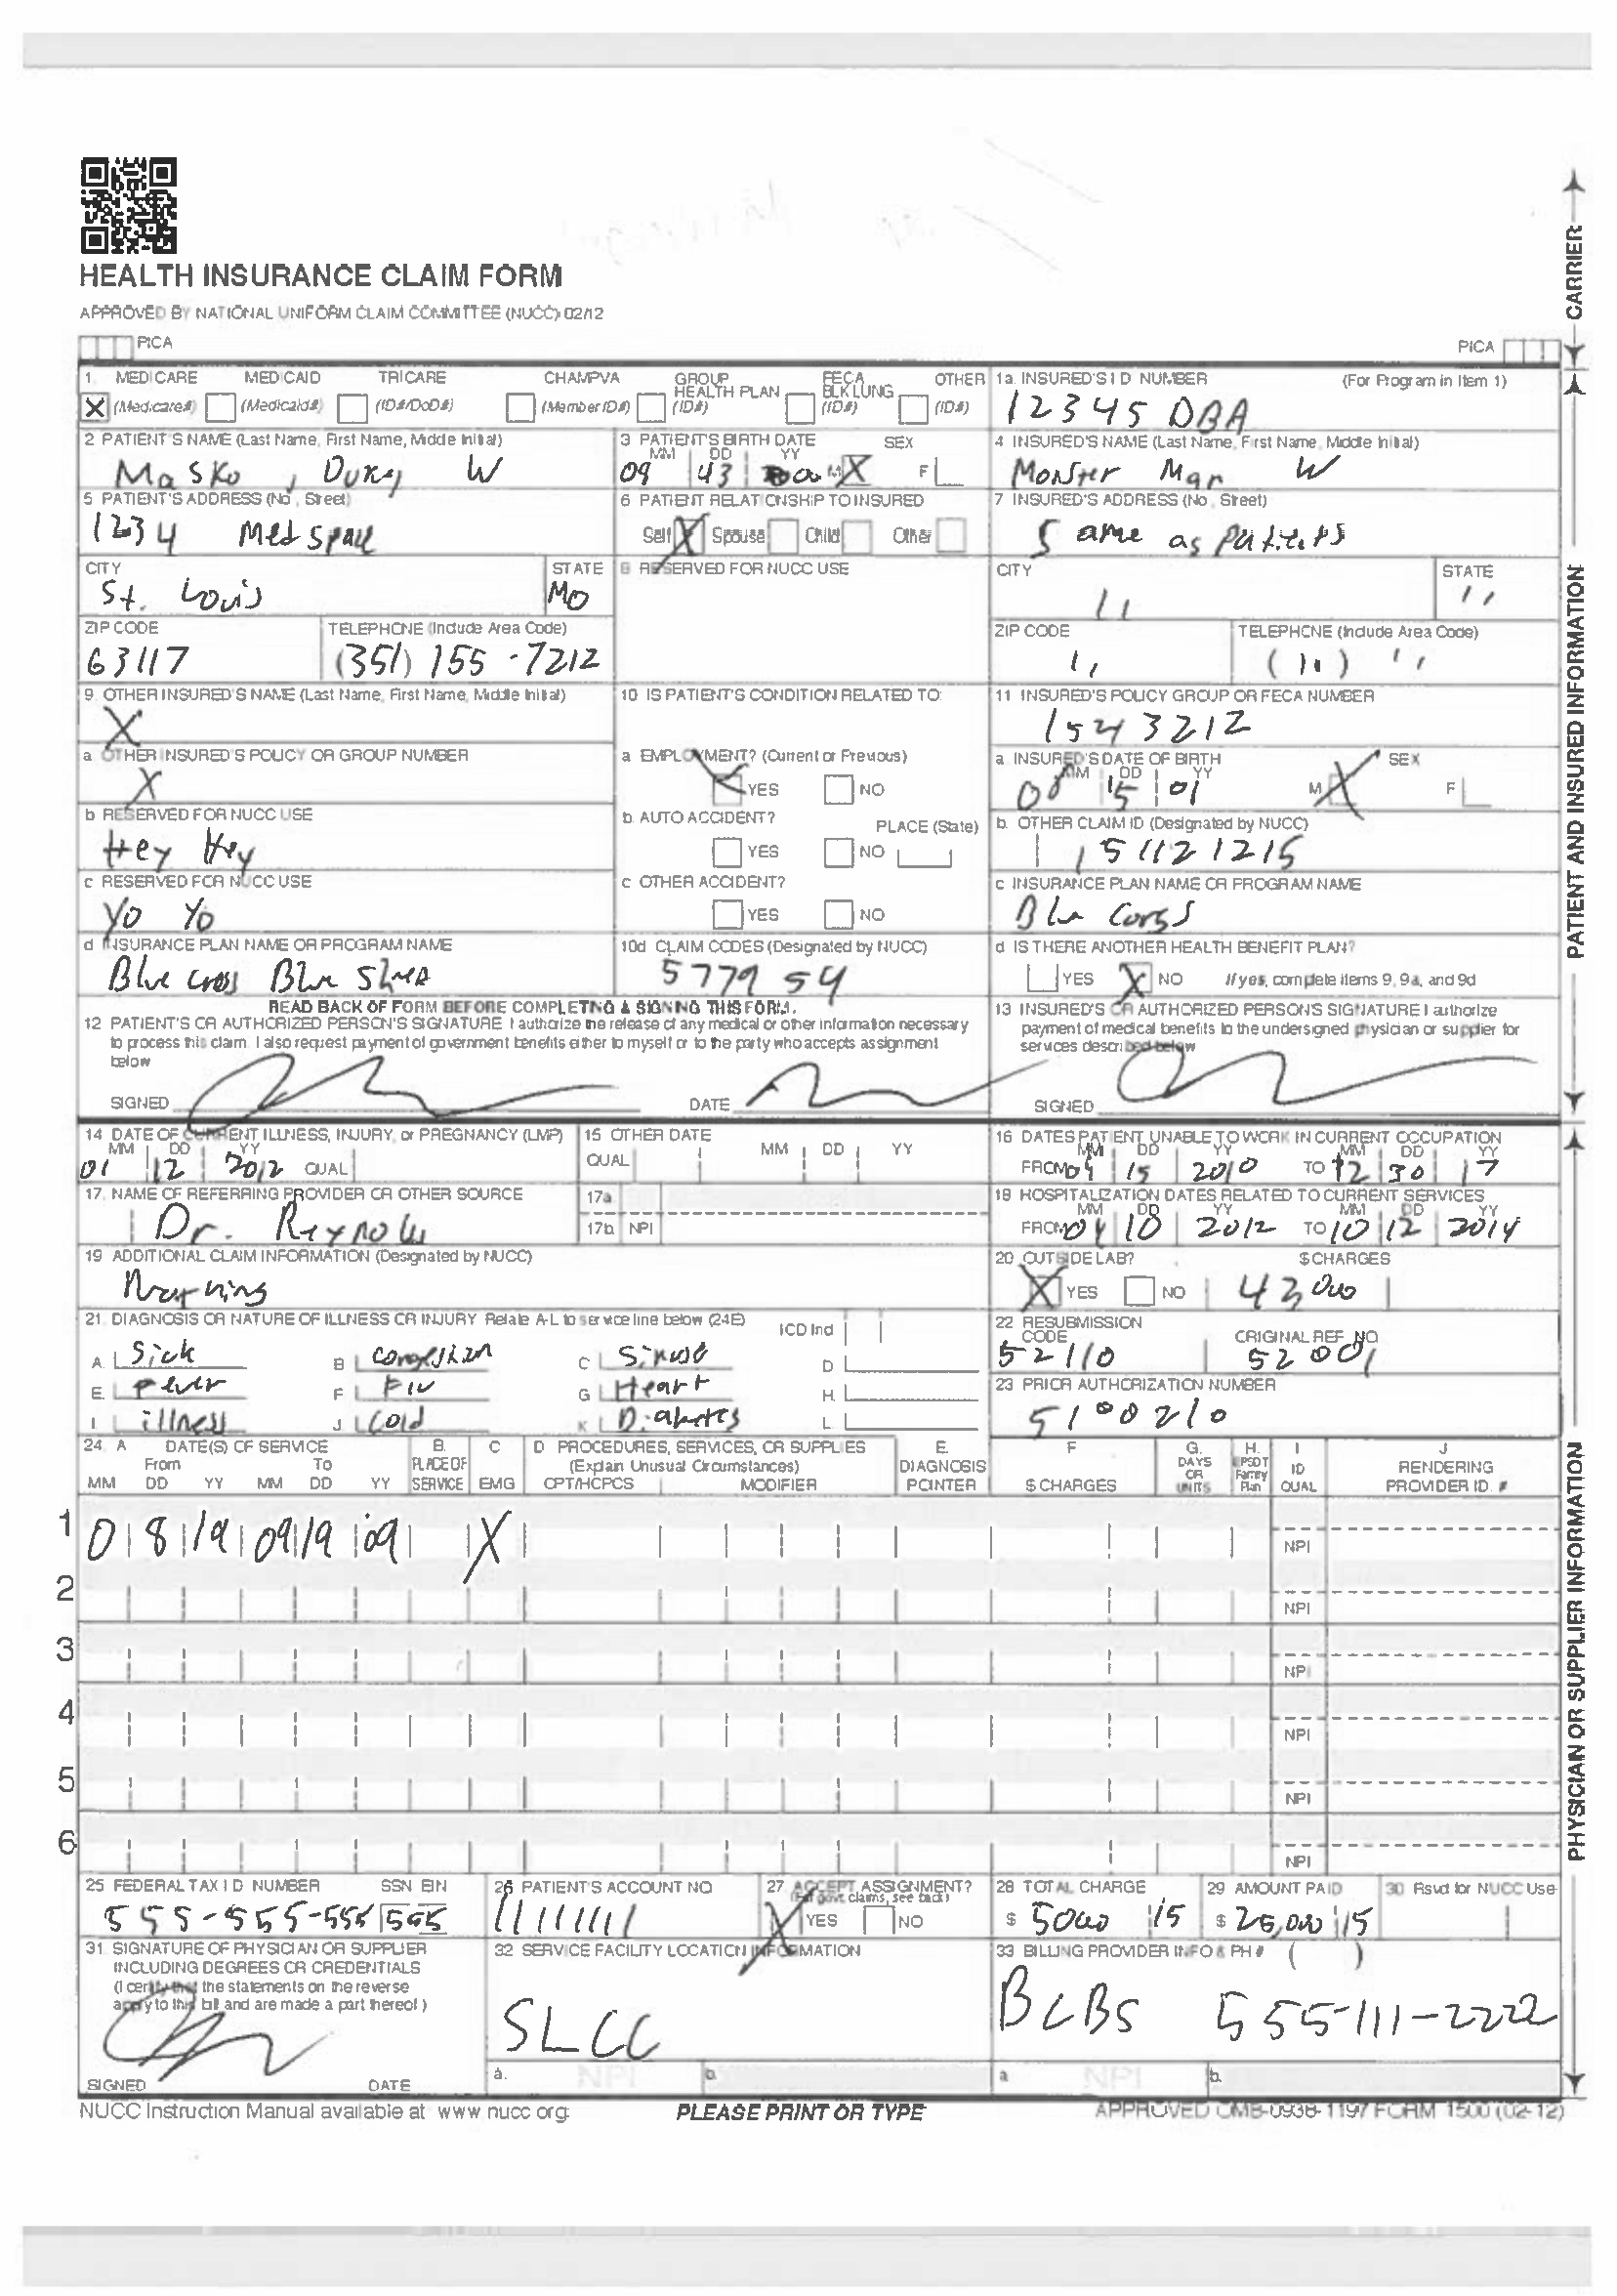 HEALTH INSURANCE CLAIM FORM
APPROVED BY NATIONAL UNIFORM CLAIM COMMITTEE (NUCC) 02/12
PICA PICA
CARRIER
1. MEDICARE MEDICAID TRICARE CHAMPVA GROUP HEALTH PLAN FECA BLK LUNG OTHER
X (Medicare#) (Medicaid#) (ID#/DoD#) (Member ID#) (ID#) (ID#) (ID#)
1a. INSURED'S I D NUMBER (For Program in Item 1)
12345 DBA
2 PATIENT'S NAME (Last Name, First Name, Middle Initial)
Masko, W
3 PATIENT'S BIRTH DATE SEX
MM DD YY
09 M X F
4 INSURED'S NAME (Last Name, First Name, Middle Initial)
Monster Man W
5 PATIENT'S ADDRESS (No, Street)
1234
6 PATIENT RELATIONSHIP TO INSURED
Self X Spouse Child Other
7 INSURED'S ADDRESS (No, Street)
Same as
CITY STATE
St. Louis MO
8 RESERVED FOR NUCC USE
CITY STATE
11 11
ZIP CODE TELEPHONE (Include Area Code)
63117 (351) 155-7212
ZIP CODE TELEPHONE (Include Area Code)
11 (11) 11
9. OTHER INSURED'S NAME (Last Name, First Name, Middle Initial)
X
10 IS PATIENT'S CONDITION RELATED TO:
11 INSURED'S POLICY GROUP OR FECA NUMBER
1543212
a OTHER INSURED'S POLICY OR GROUP NUMBER
X
a EMPLOYMENT? (Current or Previous)
YES NO
a INSURED'S DATE OF BIRTH SEX
MM DD YY
08 15 01 M X F
b RESERVED FOR NUCC USE
Hey Hey
b. AUTO ACCIDENT? PLACE (State)
YES NO
b. OTHER CLAIM ID (Designated by NUCC)
151121215
c RESERVED FOR NUCC USE
Yo Yo
c OTHER ACCIDENT?
YES NO
c INSURANCE PLAN NAME OR PROGRAM NAME
d INSURANCE PLAN NAME OR PROGRAM NAME
Blue Cross Blue
10d CLAIM CODES (Designated by NUCC)
577954
d IS THERE ANOTHER HEALTH BENEFIT PLAN?
YES X NO If yes, complete items 9, 9a, and 9d
READ BACK OF FORM BEFORE COMPLETING & SIGNING THIS FORM.
12 PATIENT'S OR AUTHORIZED PERSON'S SIGNATURE I authorize the release of any medical or other information necessary
to process this claim. I also request payment of government benefits either to myself or to the party who accepts assignment
below
SIGNED DATE
13 INSURED'S OR AUTHORIZED PERSON'S SIGNATURE I authorize
payment of medical benefits to the undersigned physician or supplier for
services described below
SIGNED
PATIENT AND INSURED INFORMATION
14 DATE OF CURRENT ILLNESS, INJURY, or PREGNANCY (LMP)
MM DD YY
01 12 2012 QUAL
15 OTHER DATE
QUAL MM DD YY
16 DATES PATIENT UNABLE TO WORK IN CURRENT OCCUPATION
MM DD YY MM DD YY
FROM 04 15 2010 TO 12 30 17
17. NAME OF REFERRING PROVIDER OR OTHER SOURCE
Dr.
17a
17b NPI
18 HOSPITALIZATION DATES RELATED TO CURRENT SERVICES
MM DD YY MM DD YY
FROM 04 10 2012 TO 10 12 2014
19 ADDITIONAL CLAIM INFORMATION (Designated by NUCC)
20 OUTSIDE LAB? $ CHARGES
X YES NO 43,000
21. DIAGNOSIS OR NATURE OF ILLNESS OR INJURY Relate A-L to service line below (24E) ICD Ind
A Sick B C D
E. Fever F Flu G Heart H.
I illness J Cold K Diabetes L
22 RESUBMISSION CODE ORIGINAL REF NO
52110 52001
23 PRIOR AUTHORIZATION NUMBER
5100210
24. A DATE(S) OF SERVICE B. C D PROCEDURES, SERVICES, OR SUPPLIES E. F G. H. I J
From To PLACE OF (Explain Unusual Circumstances) DIAGNOSIS DAYS OR EPSDT Family ID RENDERING
MM DD YY MM DD YY SERVICE EMG CPT/HCPCS MODIFIER POINTER $ CHARGES UNITS Plan QUAL PROVIDER ID. #
1 0 8 19 09 19 09 X NPI
2 NPI
3 NPI
4 NPI
5 NPI
6 NPI
25 FEDERAL TAX I D NUMBER SSN EIN
555-555-555 555
26 PATIENT'S ACCOUNT NO
11111111
27 ACCEPT ASSIGNMENT?
(For govt. claims, see back)
X YES NO
28 TOTAL CHARGE
$ 5000 15
29 AMOUNT PAID
$ 25,000 15
30 Rsvd for NUCC Use
31 SIGNATURE OF PHYSICIAN OR SUPPLIER
INCLUDING DEGREES OR CREDENTIALS
(I certify that the statements on the reverse
apply to this bill and are made a part thereof)
SIGNED DATE
32 SERVICE FACILITY LOCATION INFORMATION
SLCC
a. NPI b.
33 BILLING PROVIDER INFO & PH # ( )
BCBS 555-111-2222
a NPI b.
PHYSICIAN OR SUPPLIER INFORMATION
NUCC Instruction Manual available at www nucc org PLEASE PRINT OR TYPE APPROVED OMB-0938-1197 FORM 1500 (02-12)